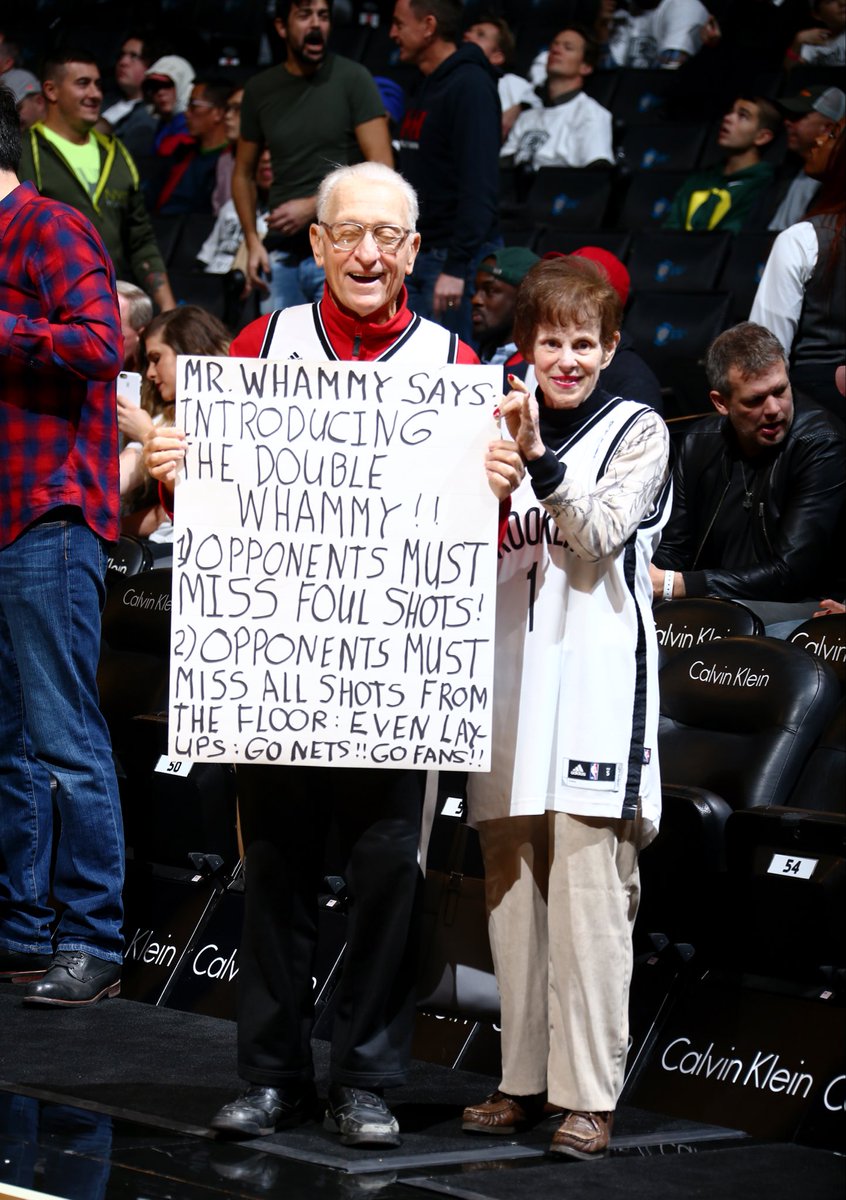 MR. WHAMMY SAYS:
INTRODUCING
THE DOUBLE
WHAMMY!!
1) OPPONENTS MUST
MISS FOUL SHOTS!
2) OPPONENTS MUST
MISS ALL SHOTS FROM
THE FLOOR: EVEN LAY-
UPS: GO NETS!! GO FANS!!
1
adidas
Calvin Kle
alvin Klein
Calvin Klein
50
54
Klein
Calv
Calvin Klein